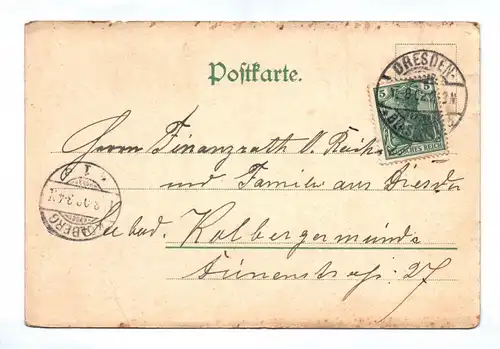 Postkarte.
DRESDEN-
5 5
DEUTSCHES REICH
Herrn Finanzrath v.
und Familie aus Dresden
Seebad. Kolbergermünde
Dünenstraße 27
KOLBERG